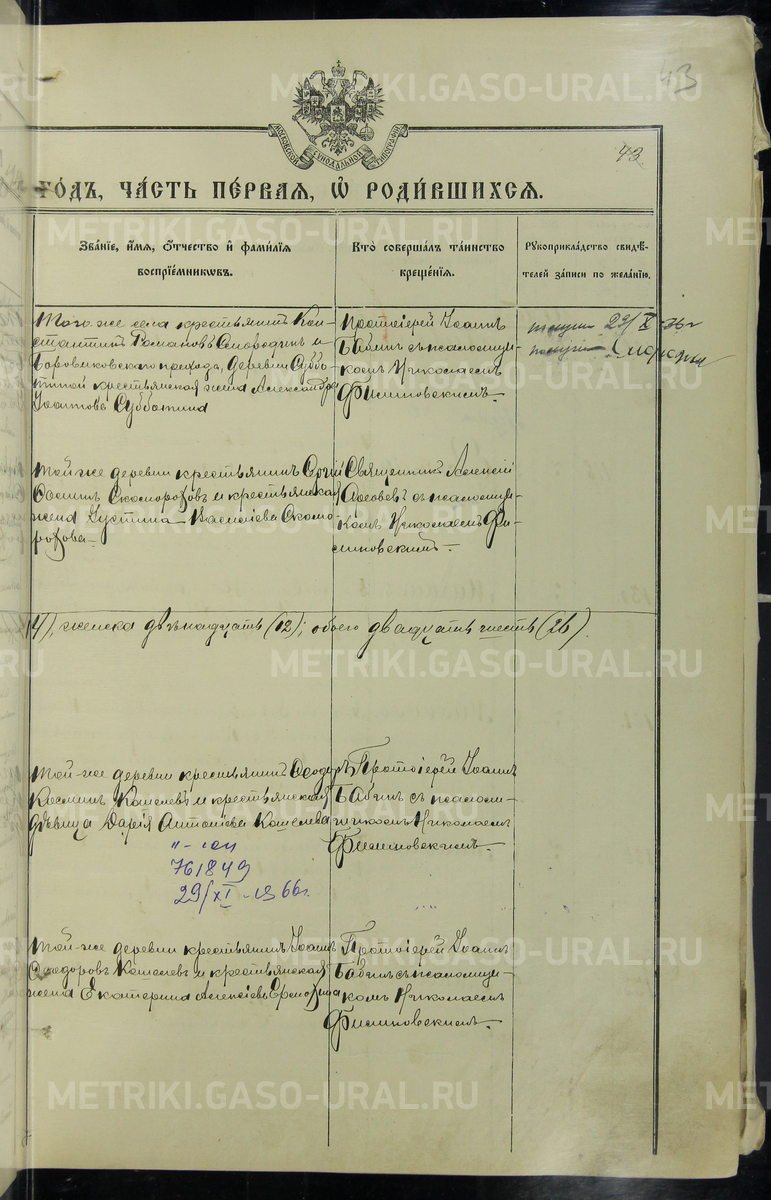 METRIKI.GASO-URAL.RU
43
МОСКОВСКОЙ СѴНОДАЛЬНОЙ ТИПОГРАФІИ
43
ГО́ДЪ, ЧА́СТЬ ПЕ́РВАЯ, Ѡ҆ РОДИ́ВШИХСЯ.
Зва́нїе, и҆́мѧ, ѻ҆́тчество и҆ фами́лїѧ
воспрїе́мникѡвъ.
Кто̀ соверша́лъ та́инство
креще́нїѧ.
Рꙋкоприкла́дство свидѣ́-
телей за́писи по жела́нїю.
Того-же села крестьянинъ Кон-
стантинъ Романовъ Смородинъ и
Боровиковскаго прихода, деревни Суббо-
тиной крестьянская жена Александра
Іоаннова Субботина
Протоіерей Іоаннъ
Бабинъ съ псаломщи-
комъ Николаемъ
Филиповскимъ.
29/X
Той же деревни крестьянинъ
Скоморохов и крестьянская
жена Іустина Васильева Скомо-
рохова.
Священникъ Алексій
съ псаломщи-
комъ Николаемъ Фи-
липовскимъ.
14), женска двѣнадцать (12); обоего двадцать шесть (26).
Той-же деревни крестьянинъ Ѳеодоръ
Космин Кошелевъ и крестьянская
дѣвица Дарія Антоніева Кошелева
761849
29/XI-1966г.
Протоіерей Іоаннъ
Бабинъ съ псалом-
щикомъ Николаемъ
Филиповскимъ.
Той-же деревни крестьянинъ Іоаннъ
Ѳеодоровъ Кошелевъ и крестьянская
жена Екатерина Алексіева
Протоіерей Іоаннъ
Бабинъ съ псаломщи-
комъ Николаемъ
Филиповскимъ.